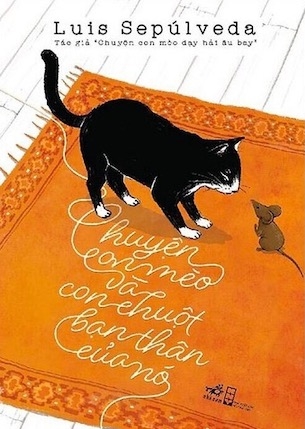 Luis Sepúlveda
Tác giả "Chuyện con mèo dạy hải âu bay"
Chuyện
con mèo
và
con chuột
bạn thân
của nó